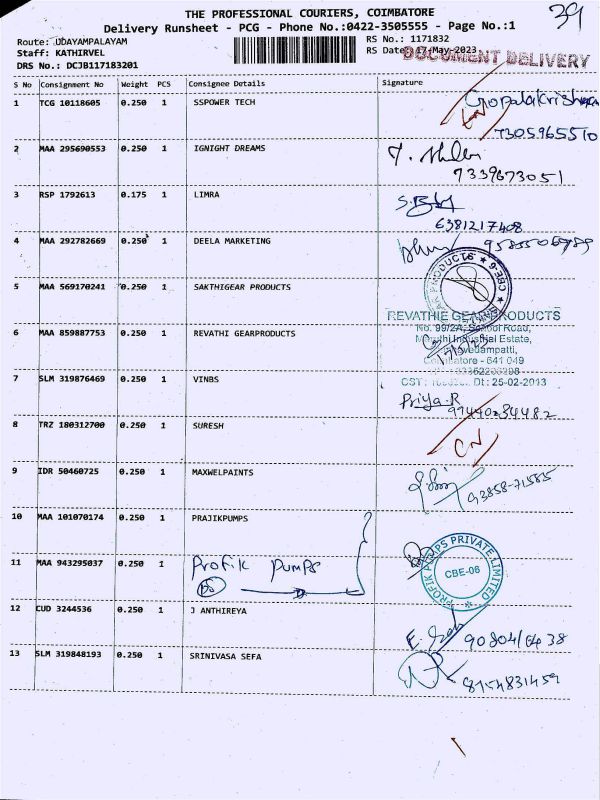 THE PROFESSIONAL COURIERS, COIMBATORE
39
Delivery Runsheet - PCG - Phone No.:0422-3505555 - Page No.:1
Route: UDAYAMPALAYAM
RS No.: 1171832
Staff: KATHIRVEL
RS Date: 17-May-2023
DOCUMENT DELIVERY
DRS No.: DCJB117183201
S No Consignment No Weight PCS Consignee Details Signature
1 TCG 10118605 0.250 1 SSPOWER TECH Gopalakrishnan
7305965510
2 MAA 295690553 0.250 1 IGNIGHT DREAMS
7339673051
3 RSP 1792613 0.175 1 LIMRA
6381217408
4 MAA 292782669 0.250 1 DEELA MARKETING
5 MAA 569170241 0.250 1 SAKTHIGEAR PRODUCTS
REVATHIE GEAR PRODUCTS
No. 99/2A, School Road,
6 MAA 859887753 0.250 1 REVATHI GEARPRODUCTS
Maruthi Industrial Estate,
Coimbatore - 641 049
7 SLM 319876469 0.250 1 VINBS
CST : Dt : 25-02-2013
Priya.R
8 TRZ 180312700 0.250 1 SURESH
CN
9 IDR 50460725 0.250 1 MAXWELPAINTS
93858-71585
10 MAA 101070174 0.250 1 PRAJIKPUMPS
11 MAA 943295037 0.250 1 Profik Pumps
PROFIK PUMPS PRIVATE LIMITED
CBE-06
12 CUD 3244536 0.250 1 J ANTHIREYA
13 SLM 319848193 0.250 1 SRINIVASA SEFA
8154831459